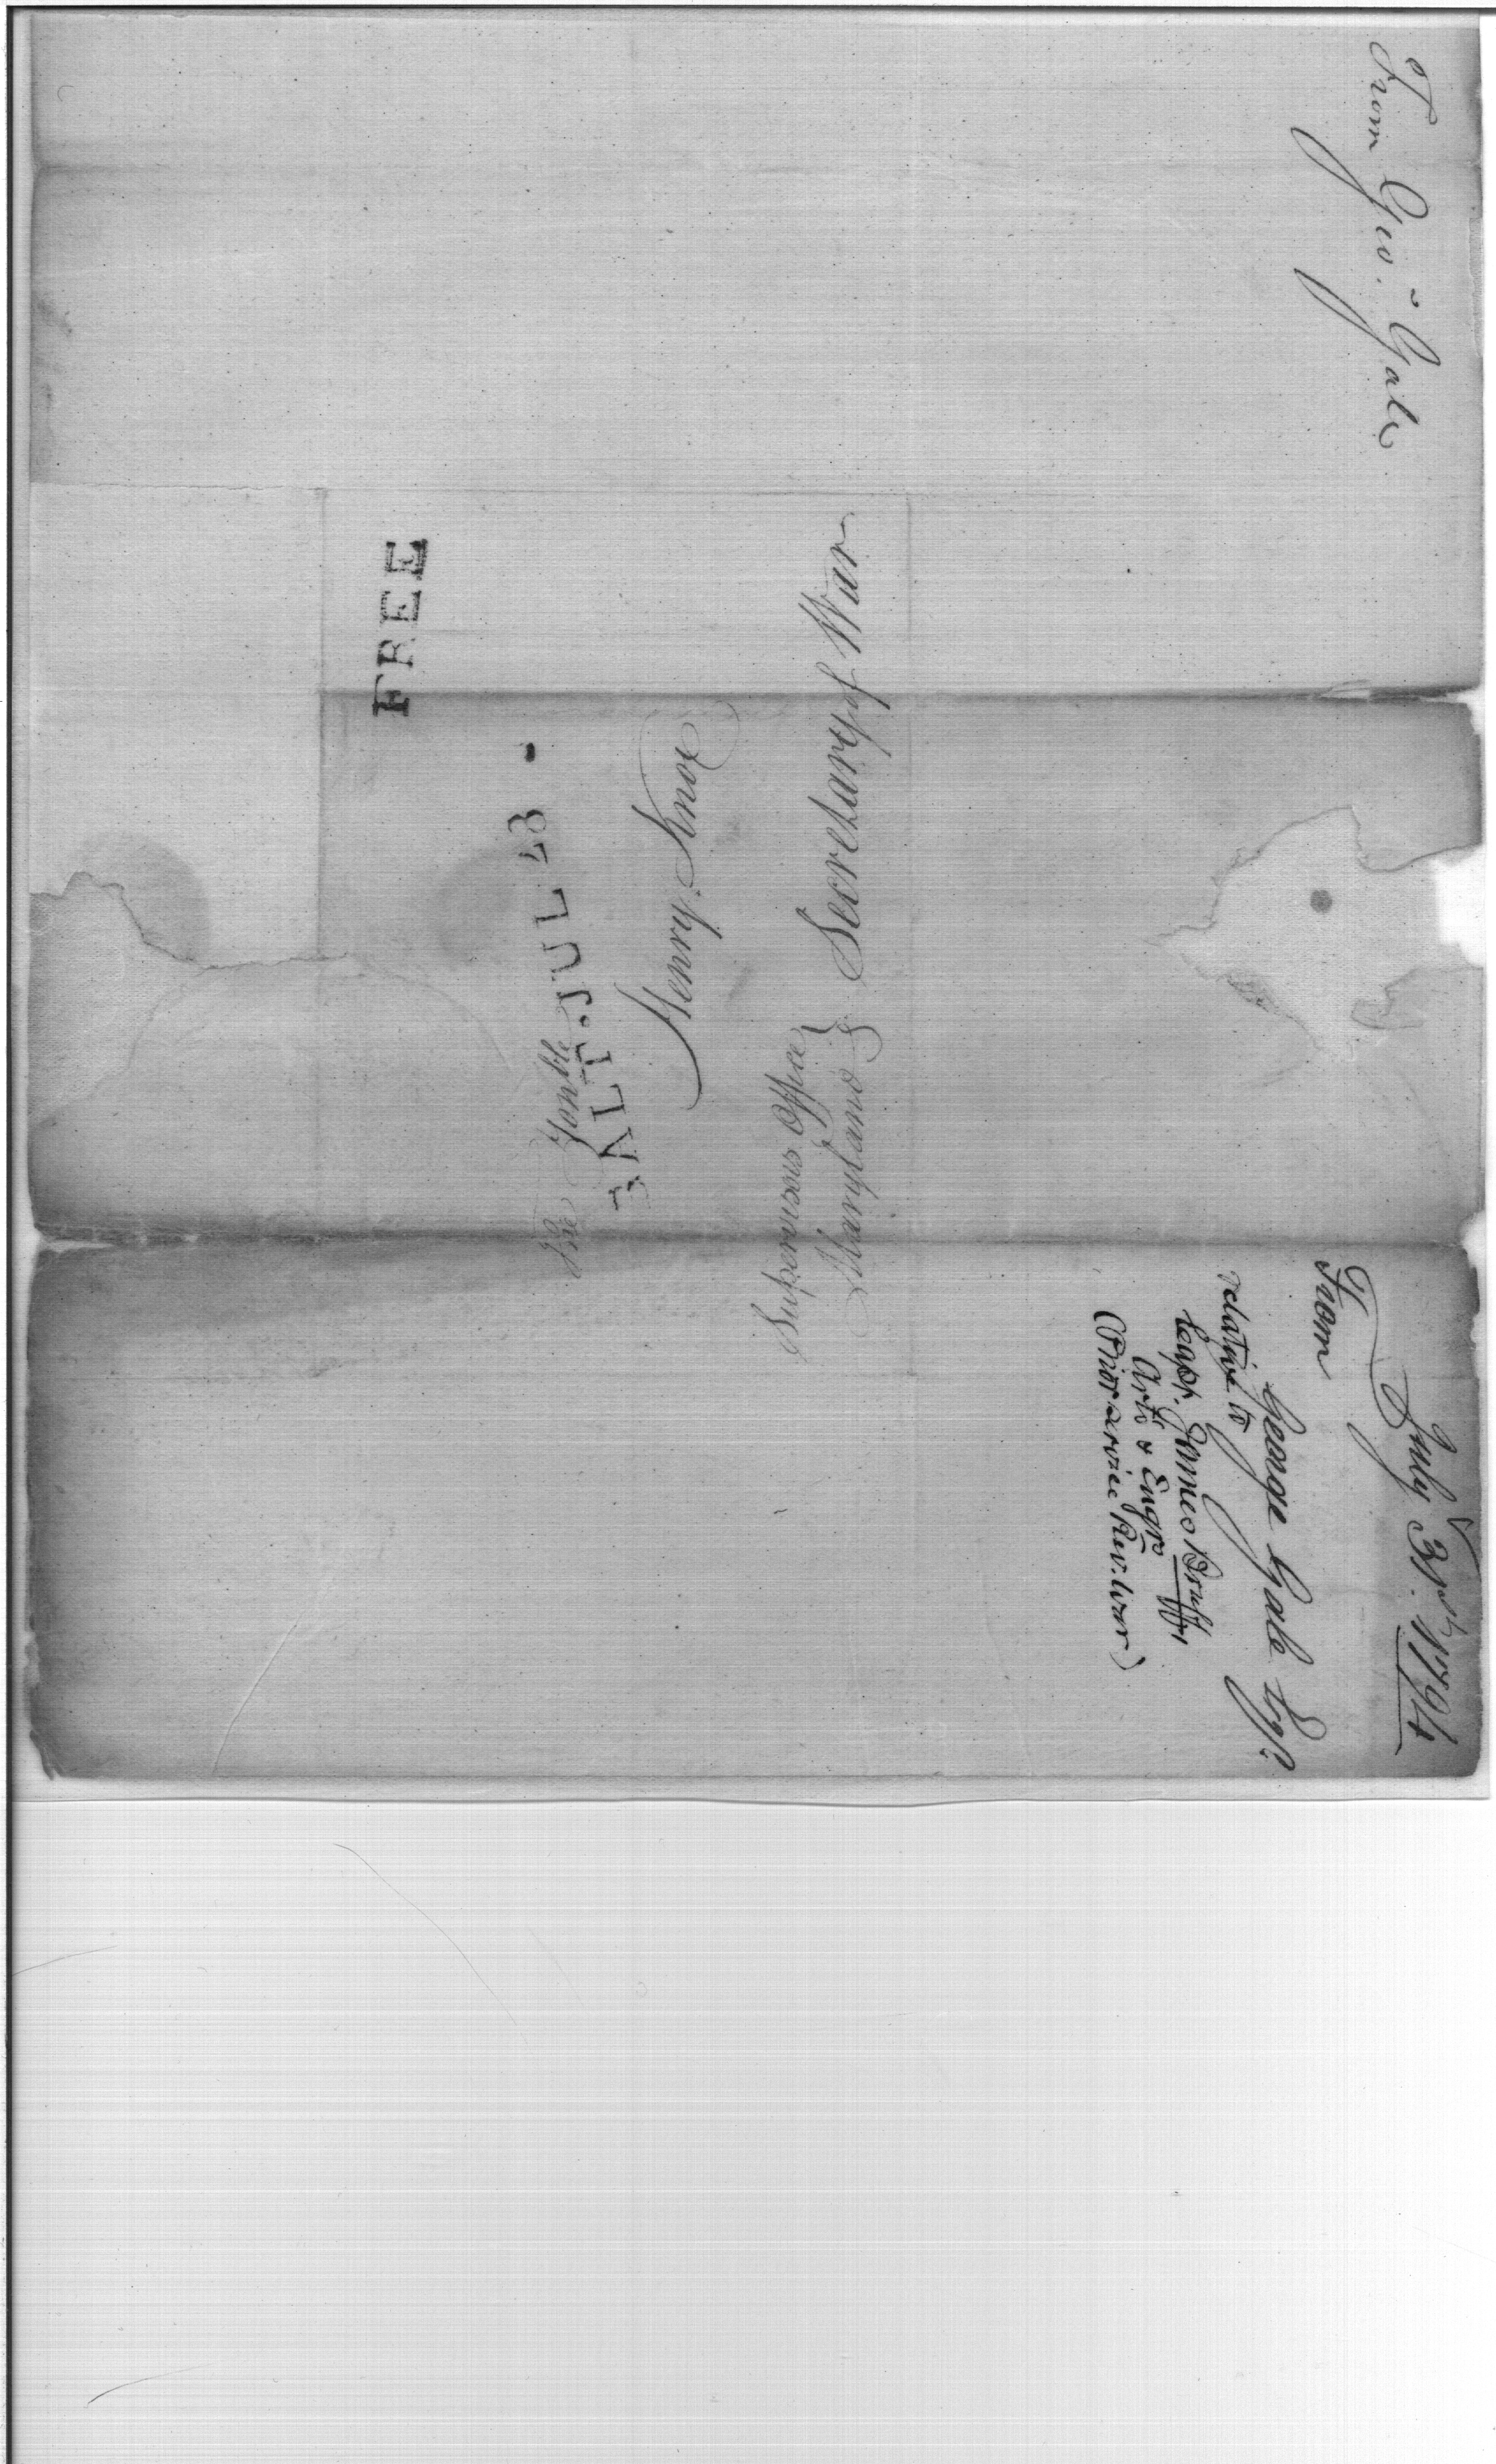 From Geo: Gale
FREE
BALT. JUL 23
The Honble
Henry Knox
Secretary of War
Supervisors Office
Maryland
July 1794
From
George Gale Esqr.
relative to
Capt. James Bruff,
Arts & Engrs
(Prior service Rev. War)